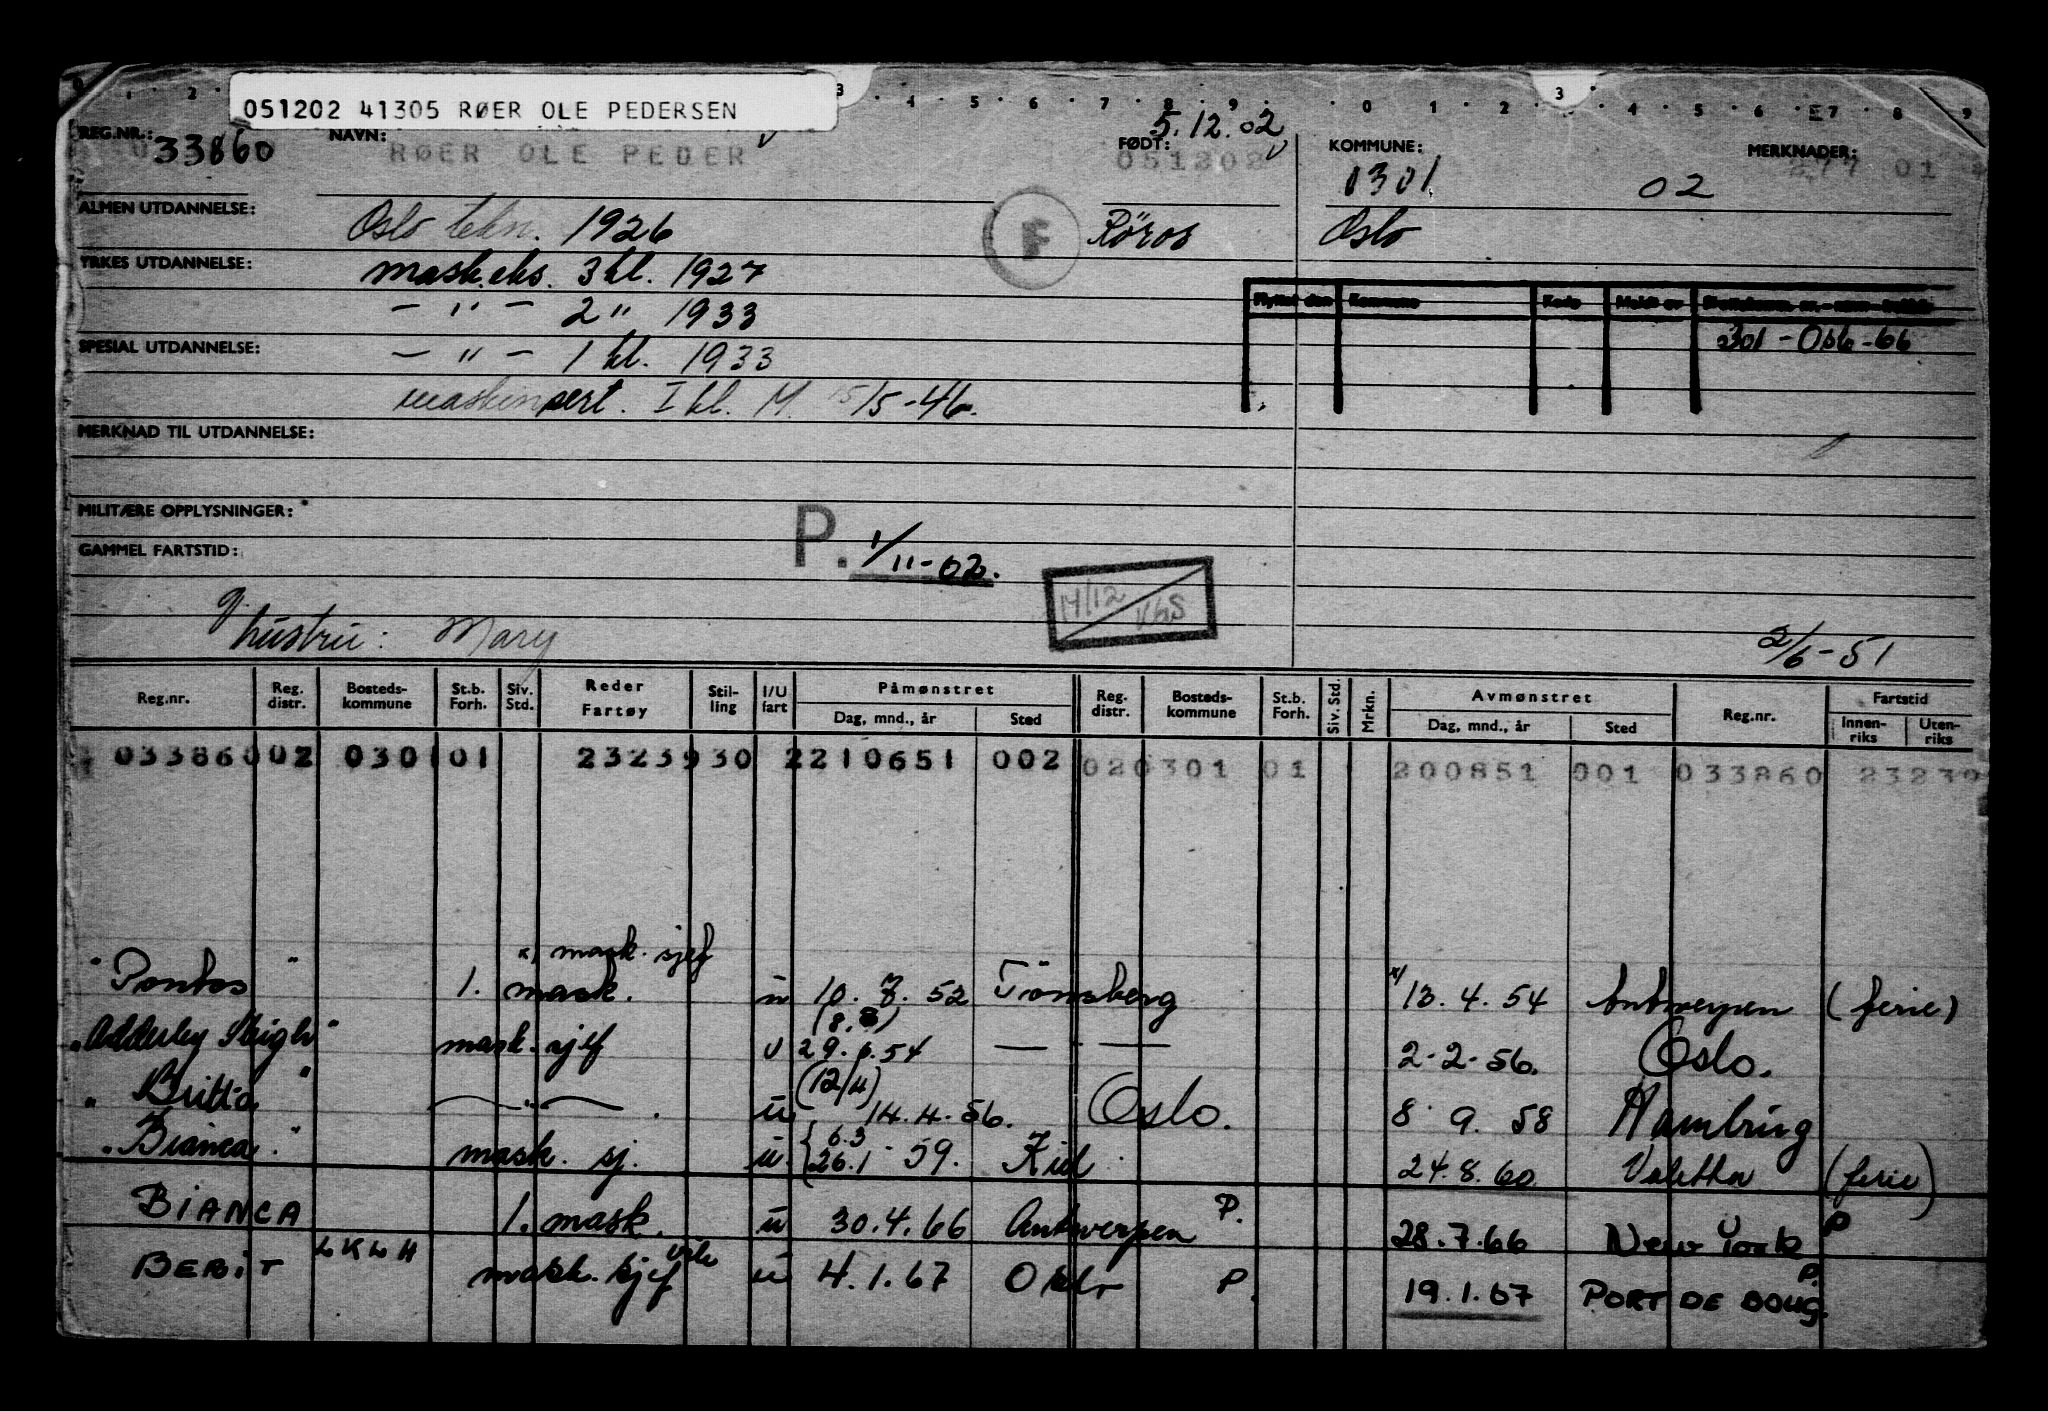 051202 41305 RØER OLE PEDERSEN
REG.NR.: 33860 NAVN: RØER OLE PEDER FØDT: 5.12.02 051202 KOMMUNE: 0301 02 MERKNADER: 01
ALMEN UTDANNELSE: Oslo tekn. 1926 F Röros Oslo
YRKES UTDANNELSE: mask.eks. 3 kl. 1927
— " — 2 " 1933
Flyttet den Kommune Kode Meldt av
301 - Oslo - 66
SPESIAL UTDANNELSE: — " — 1 kl. 1933
maskinsert. I kl. M. 15/5-46.
MERKNAD TIL UTDANNELSE:
MILITÆRE OPPLYSNINGER:
GAMMEL FARTSTID:
P. 1/11-62.
14/12
g. hustru: Mary
2/6-51
Reg.nr. Reg. distr. Bosteds-kommune St.b. Forh. Siv. Std. Reder Fartøy Stil-ling I/U fart Påmønstret Dag, mnd., år Sted Reg. distr. Bosteds-kommune St.b. Forh. Siv. Std. Mrkn. Avmønstret Dag, mnd., år Sted Reg.nr. Fartstid Innen-riks Uten-riks
033860 02 0301 01 23239 30 2 210651 002 02 0301 01 200851 001 033860 23239
x) mask. sjef
"Pontos" 1. mask. u 10. 7. 52 Tönsberg x) 13. 4. 54 Antwerpen (ferie)
(8.8)
"Adderley Skigh" mask. sjef u 29. 6. 54 — " — 2-2-56. Oslo.
(12/4)
"Britta" — " — u 14.4.56. Oslo. 8 9. 58 Hamburg
"Bianca" mask. sj. u. {6.3 26.1 59. Kiel 24.8.60 Valetta (ferie)
BIANCA 1. mask. u 30.4.66 Antwerpen P. 28.7.66 New York P
BEBIT LKLH mask. sjef u 4.1.67 Oslo P. 19.1.67 PORT DE BOUG. P.